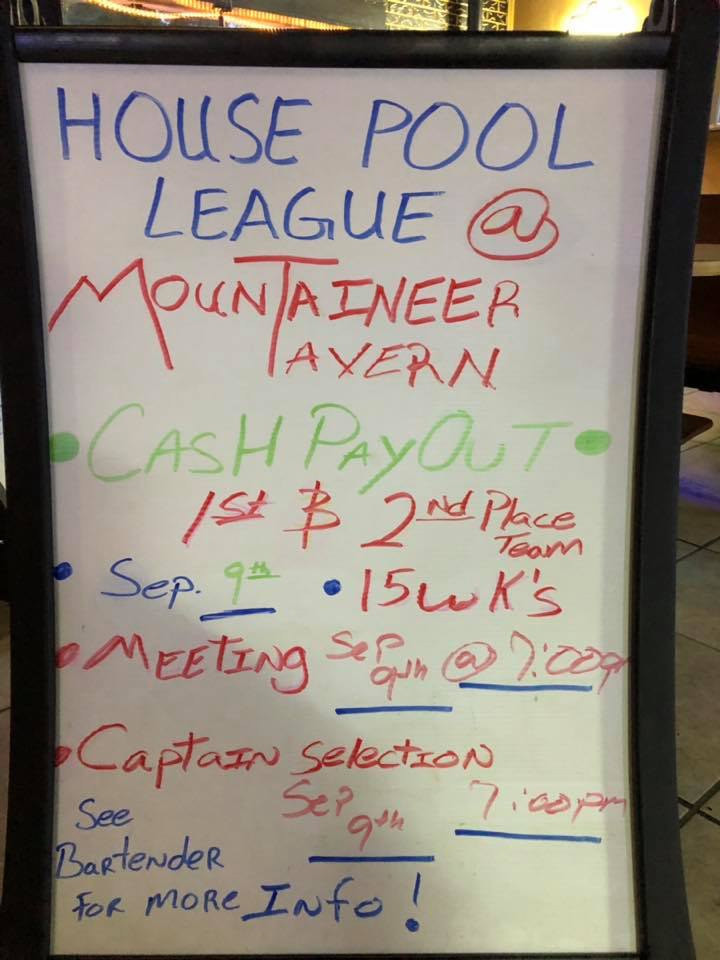 HOUSE POOL
LEAGUE @
MOUNTAINEER
TAVERN
• CASH PAYOUT •
1st & 2nd Place
Team
• Sep. 9th • 15 wK's
• MEETING Sep 9th @ 7:00pm
• Captain Selection
Sep 9th 7:00pm
See
Bartender
For more Info!